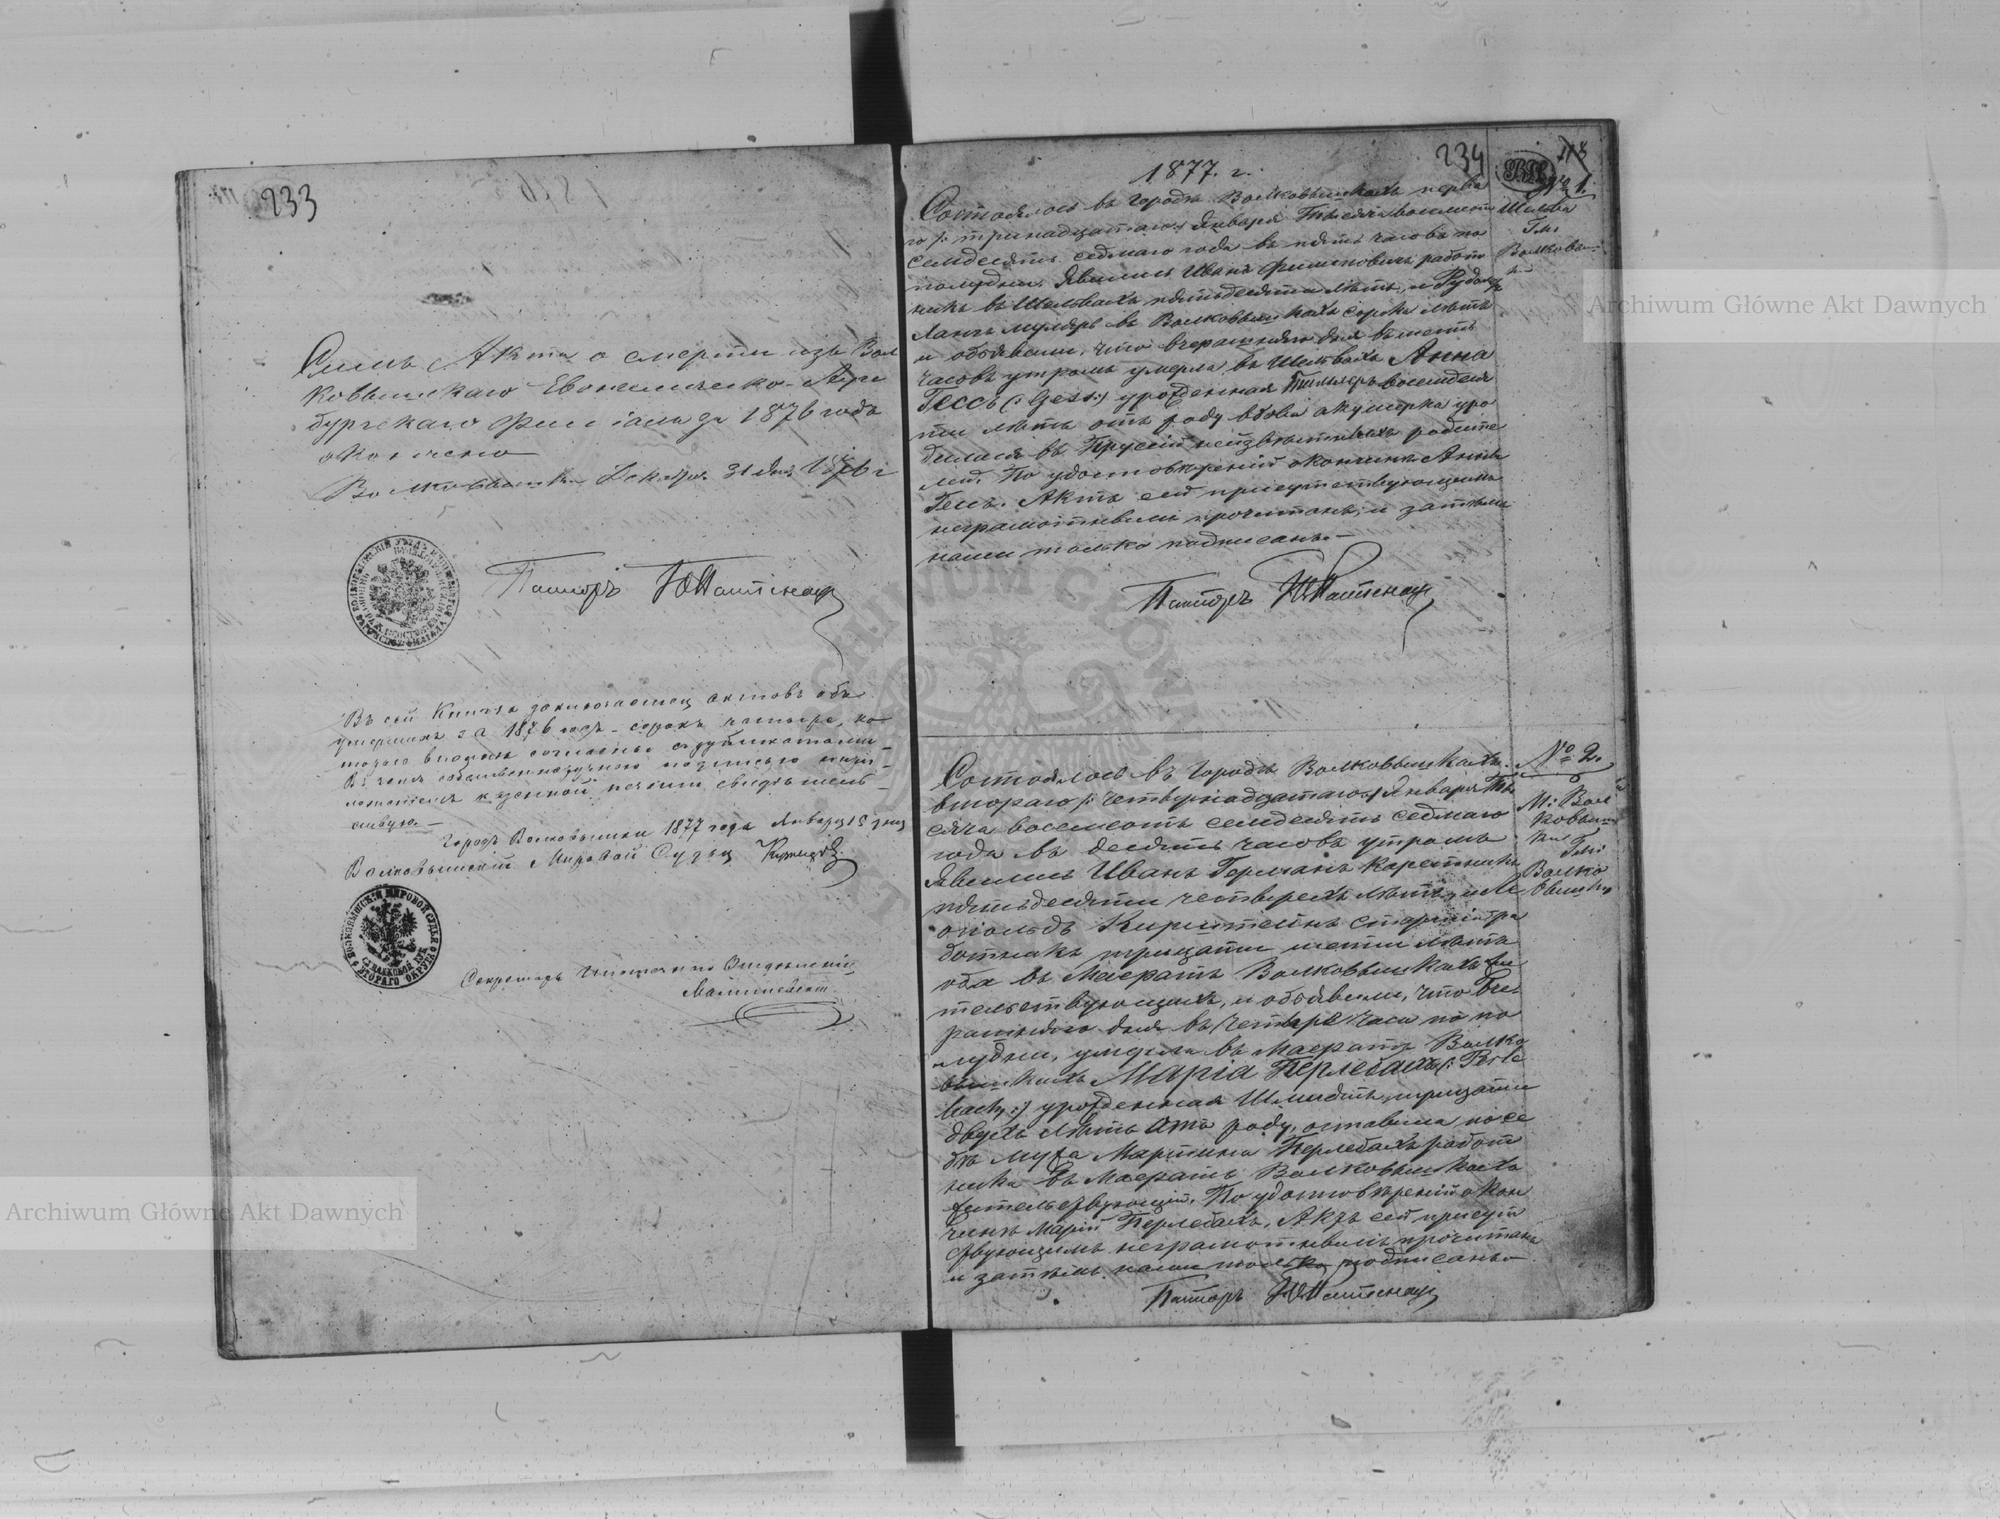 233
Симъ Акта о смерти изъ Вол
ковышскаго Евангелическо-Аугс
бургскаго Филіала за 1876 годъ
окончено
Волковышки Декабря 31 дня 1876 г
Пасторъ
Въ сей Книгѣ заключается актовъ объ
умершихъ за 1876 годъ - сорокъ четыре, ко
торые вполнѣ согласны съ дубликатами
Въ чемъ собственноручною подписью
казенной печати свидѣтель
ствую.—
Городъ Волковышки 1877 года Января 15 дня
Волковышскій Мировой Судья
Секретарь Ипотечнаго Отдѣленія
234
1877. г.
№ 1.
Шельва
Гм:
Волковы-
Состоялось въ городѣ Волковышкахъ перва
го /: тринадцатаго:/ Января Тысяча восемсотъ
семдесятъ седмаго года въ пять часовъ по
полудни. Явились Иванъ Филиповичъ работ
никъ въ Шельвахъ пятьдесяти лѣтъ, и Рудольфъ
Лангъ муляръ въ Волковышкахъ сорока лѣтъ
и объявили, что вчерашняго дня въ шесть
часовъ утромъ умерла въ Шельвахъ Анна
Гессъ (: Gess:) урожденная восемдеся
ти лѣтъ отъ роду вдова акушерка уро
дилася въ Пруссіи неизвѣстныхъ родите
лей. По удостовѣреніи о кончинѣ Анны
Гессъ. Актъ сей присутствующимъ
неграмотнымъ прочитанъ, и затѣмъ
нами только подписанъ.—
Пасторъ
№ 2.
М: Вол
ковыш
ки
Гм:
Волко
вышки
Состоялось въ городѣ Волковышкахъ
втораго /: четырнадцатаго:/ Января Ты
сяча восемсотъ семдесятъ седмаго
года въ десять часовъ утромъ
Явились Иванъ Германъ каретникъ
пятьдесяти четырехъ лѣтъ, и Ле
опольдъ Кирштейнъ старшій ра
ботникъ тридцати шести лѣтъ
оба въ Маератъ Волковышкахъ жи
тельствующихъ, и объявили, что вче
рашняго дня въ четыре часа по по
лудни, умерла въ Маератъ Волко
вышкахъ Марія Перлебахъ (: Perle
bach:) урожденная Шмидтъ, тридцати
двухъ лѣтъ отъ роду, оставила по се
бѣ мужа Мартина Перлебахъ работ
ника въ Маератъ Волковышкахъ
жительствующій. По удостовѣреніи о кон
чинѣ Маріи Перлебахъ, Актъ сей присут
ствующимъ неграмотнымъ прочитанъ
и затѣмъ нами только подписанъ.—
Пасторъ
Archiwum Główne Akt Dawnych
Archiwum Główne Akt Dawnych